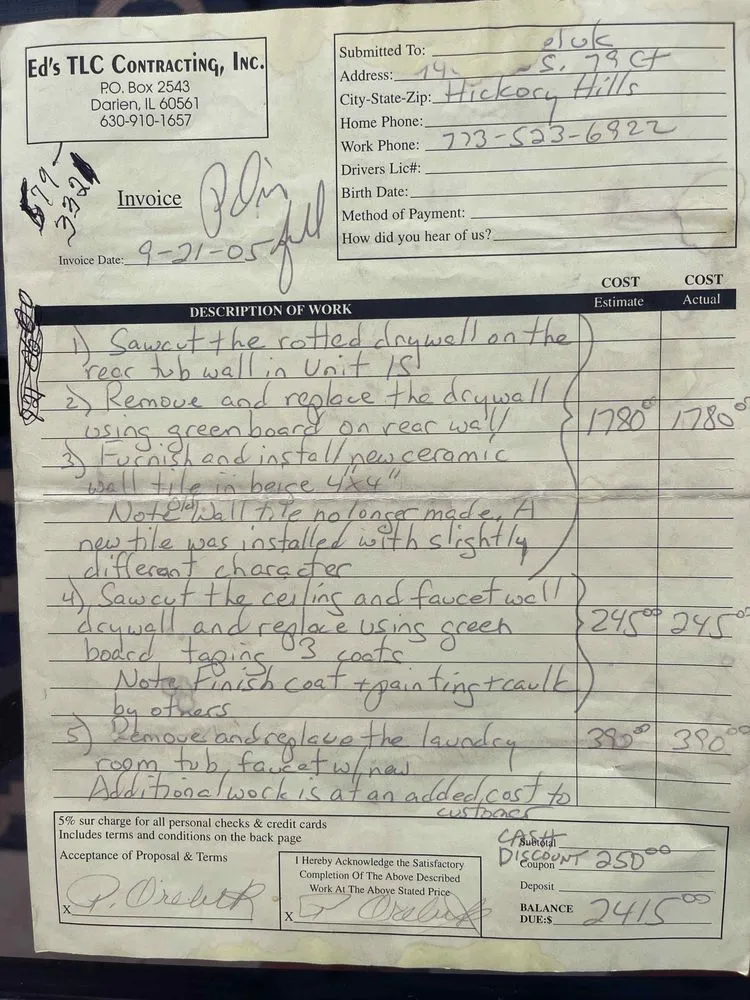 Ed's TLC Contracting, Inc.
P.O. Box 2543
Darien, IL 60561
630-910-1657
Submitted To:
Address: 14 S. 79 Ct
City-State-Zip: Hickory Hills
Home Phone:
Work Phone: 773-523-6922
Drivers Lic#:
Birth Date:
Method of Payment:
How did you hear of us?
579-
3321
Invoice
Invoice Date: 9-21-05
full
DESCRIPTION OF WORK
COST
Estimate
COST
Actual
1) Sawcut the rotted drywall on the
rear tub wall in Unit 1S
2) Remove and replace the drywall
using greenboard on rear wall
1780 00 1780 00
3) Furnish and install new ceramic
wall tile in beige 4"x4"
Note Old Wall tile no longer made. A
new tile was installed with slightly
different character
4) Sawcut the ceiling and faucet wall
drywall and replace using green
245 00 245 00
board taping 3 coats
Note Finish coat + painting + caulk
by others
5) Remove and replave the laundry
390 00 390 00
room tub, faucet w/new
Additional work is at an added cost to
customer
5% sur charge for all personal checks & credit cards
Includes terms and conditions on the back page
Acceptance of Proposal & Terms
X
I Hereby Acknowledge the Satisfactory
Completion Of The Above Described
Work At The Above Stated Price
X
CASH
Subtotal
DISCOUNT 250 00
Coupon
Deposit
BALANCE
DUE:$ 2415 00